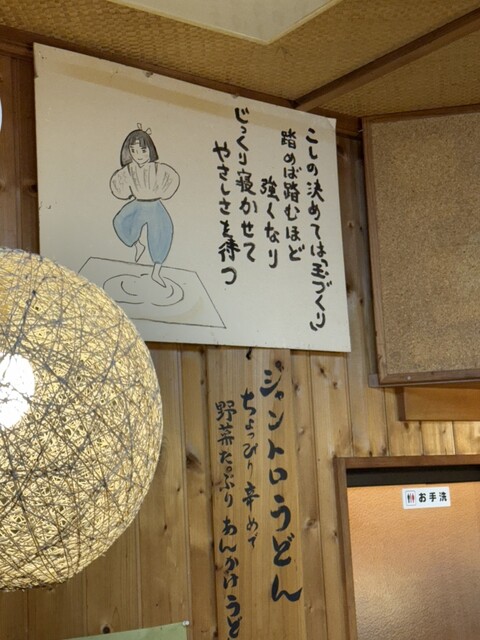 こしの決めては「玉づくり」
踏めば踏むほど
強くなり
じっくり寝かせて
やさしさを待つ
ジャントロうどん
ちょっぴり辛めで
野菜たっぷりあんかけうど
お手洗